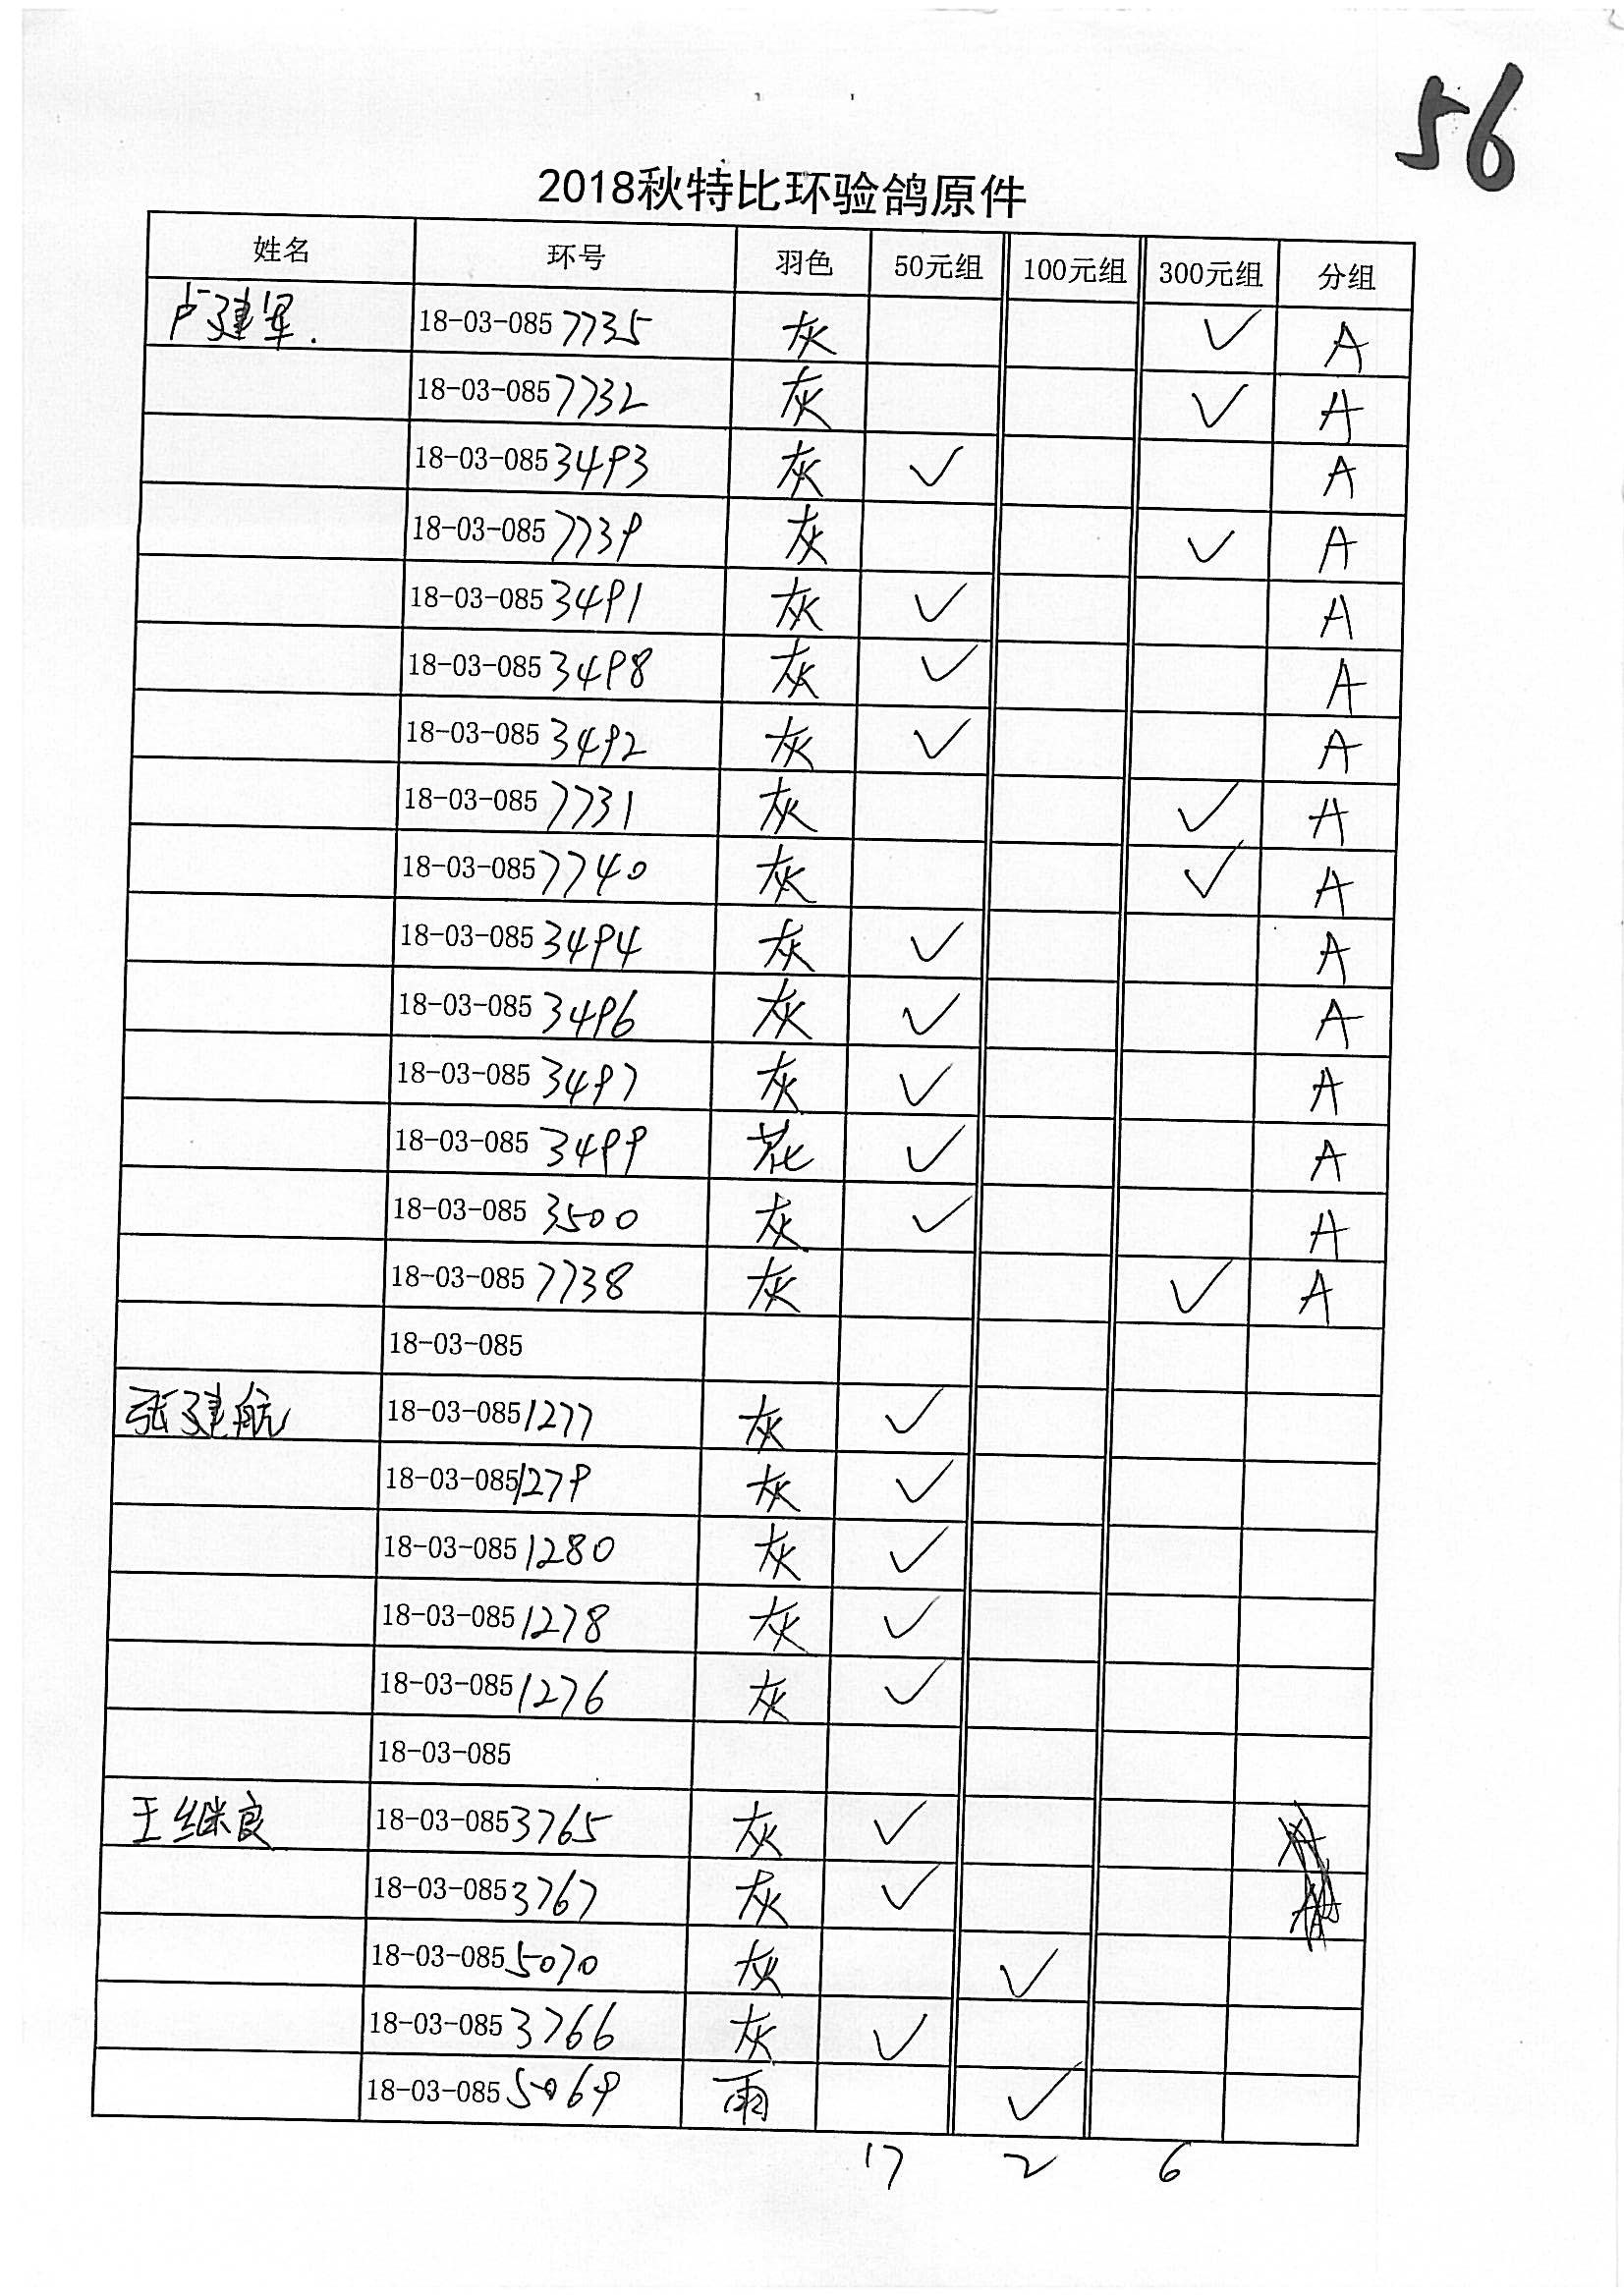 56
2018秋特比环验鸽原件
姓名 环号 羽色 50元组 100元组 300元组 分组
卢建军. 18-03-085 7735 灰 ✓ A
18-03-085 7732 灰 ✓ A
18-03-085 3493 灰 ✓ A
18-03-085 7739 灰 ✓ A
18-03-085 3491 灰 ✓ A
18-03-085 3498 灰 ✓ A
18-03-085 3492 灰 ✓ A
18-03-085 7731 灰 ✓ A
18-03-085 7740 灰 ✓ A
18-03-085 3494 灰 ✓ A
18-03-085 3496 灰 ✓ A
18-03-085 3497 灰 ✓ A
18-03-085 3499 花 ✓ A
18-03-085 3500 灰 ✓ A
18-03-085 7738 灰 ✓ A
18-03-085
张建航 18-03-085 1277 灰 ✓
18-03-085 1279 灰 ✓
18-03-085 1280 灰 ✓
18-03-085 1278 灰 ✓
18-03-085 1276 灰 ✓
18-03-085
王继良 18-03-085 3765 灰 ✓
18-03-085 3767 灰 ✓
18-03-085 5070 灰 ✓
18-03-085 3766 灰 ✓
18-03-085 5069 雨 ✓
17 2 6